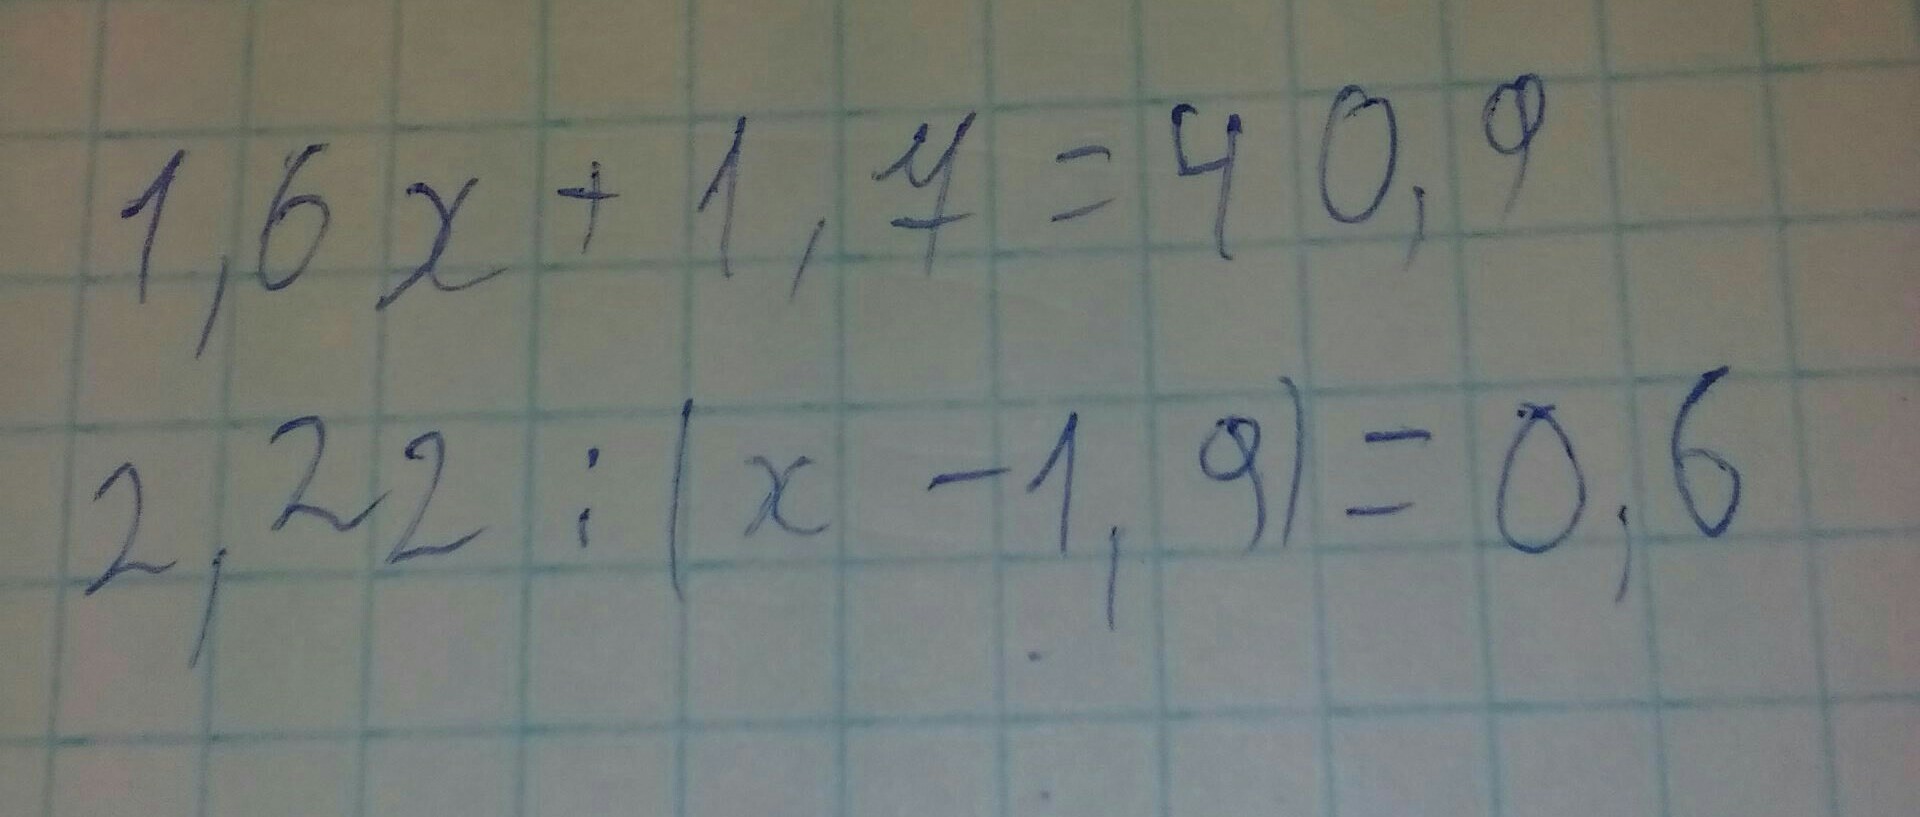 1,6x + 1,7 = 40,9
2,22 : (x - 1,9) = 0,6